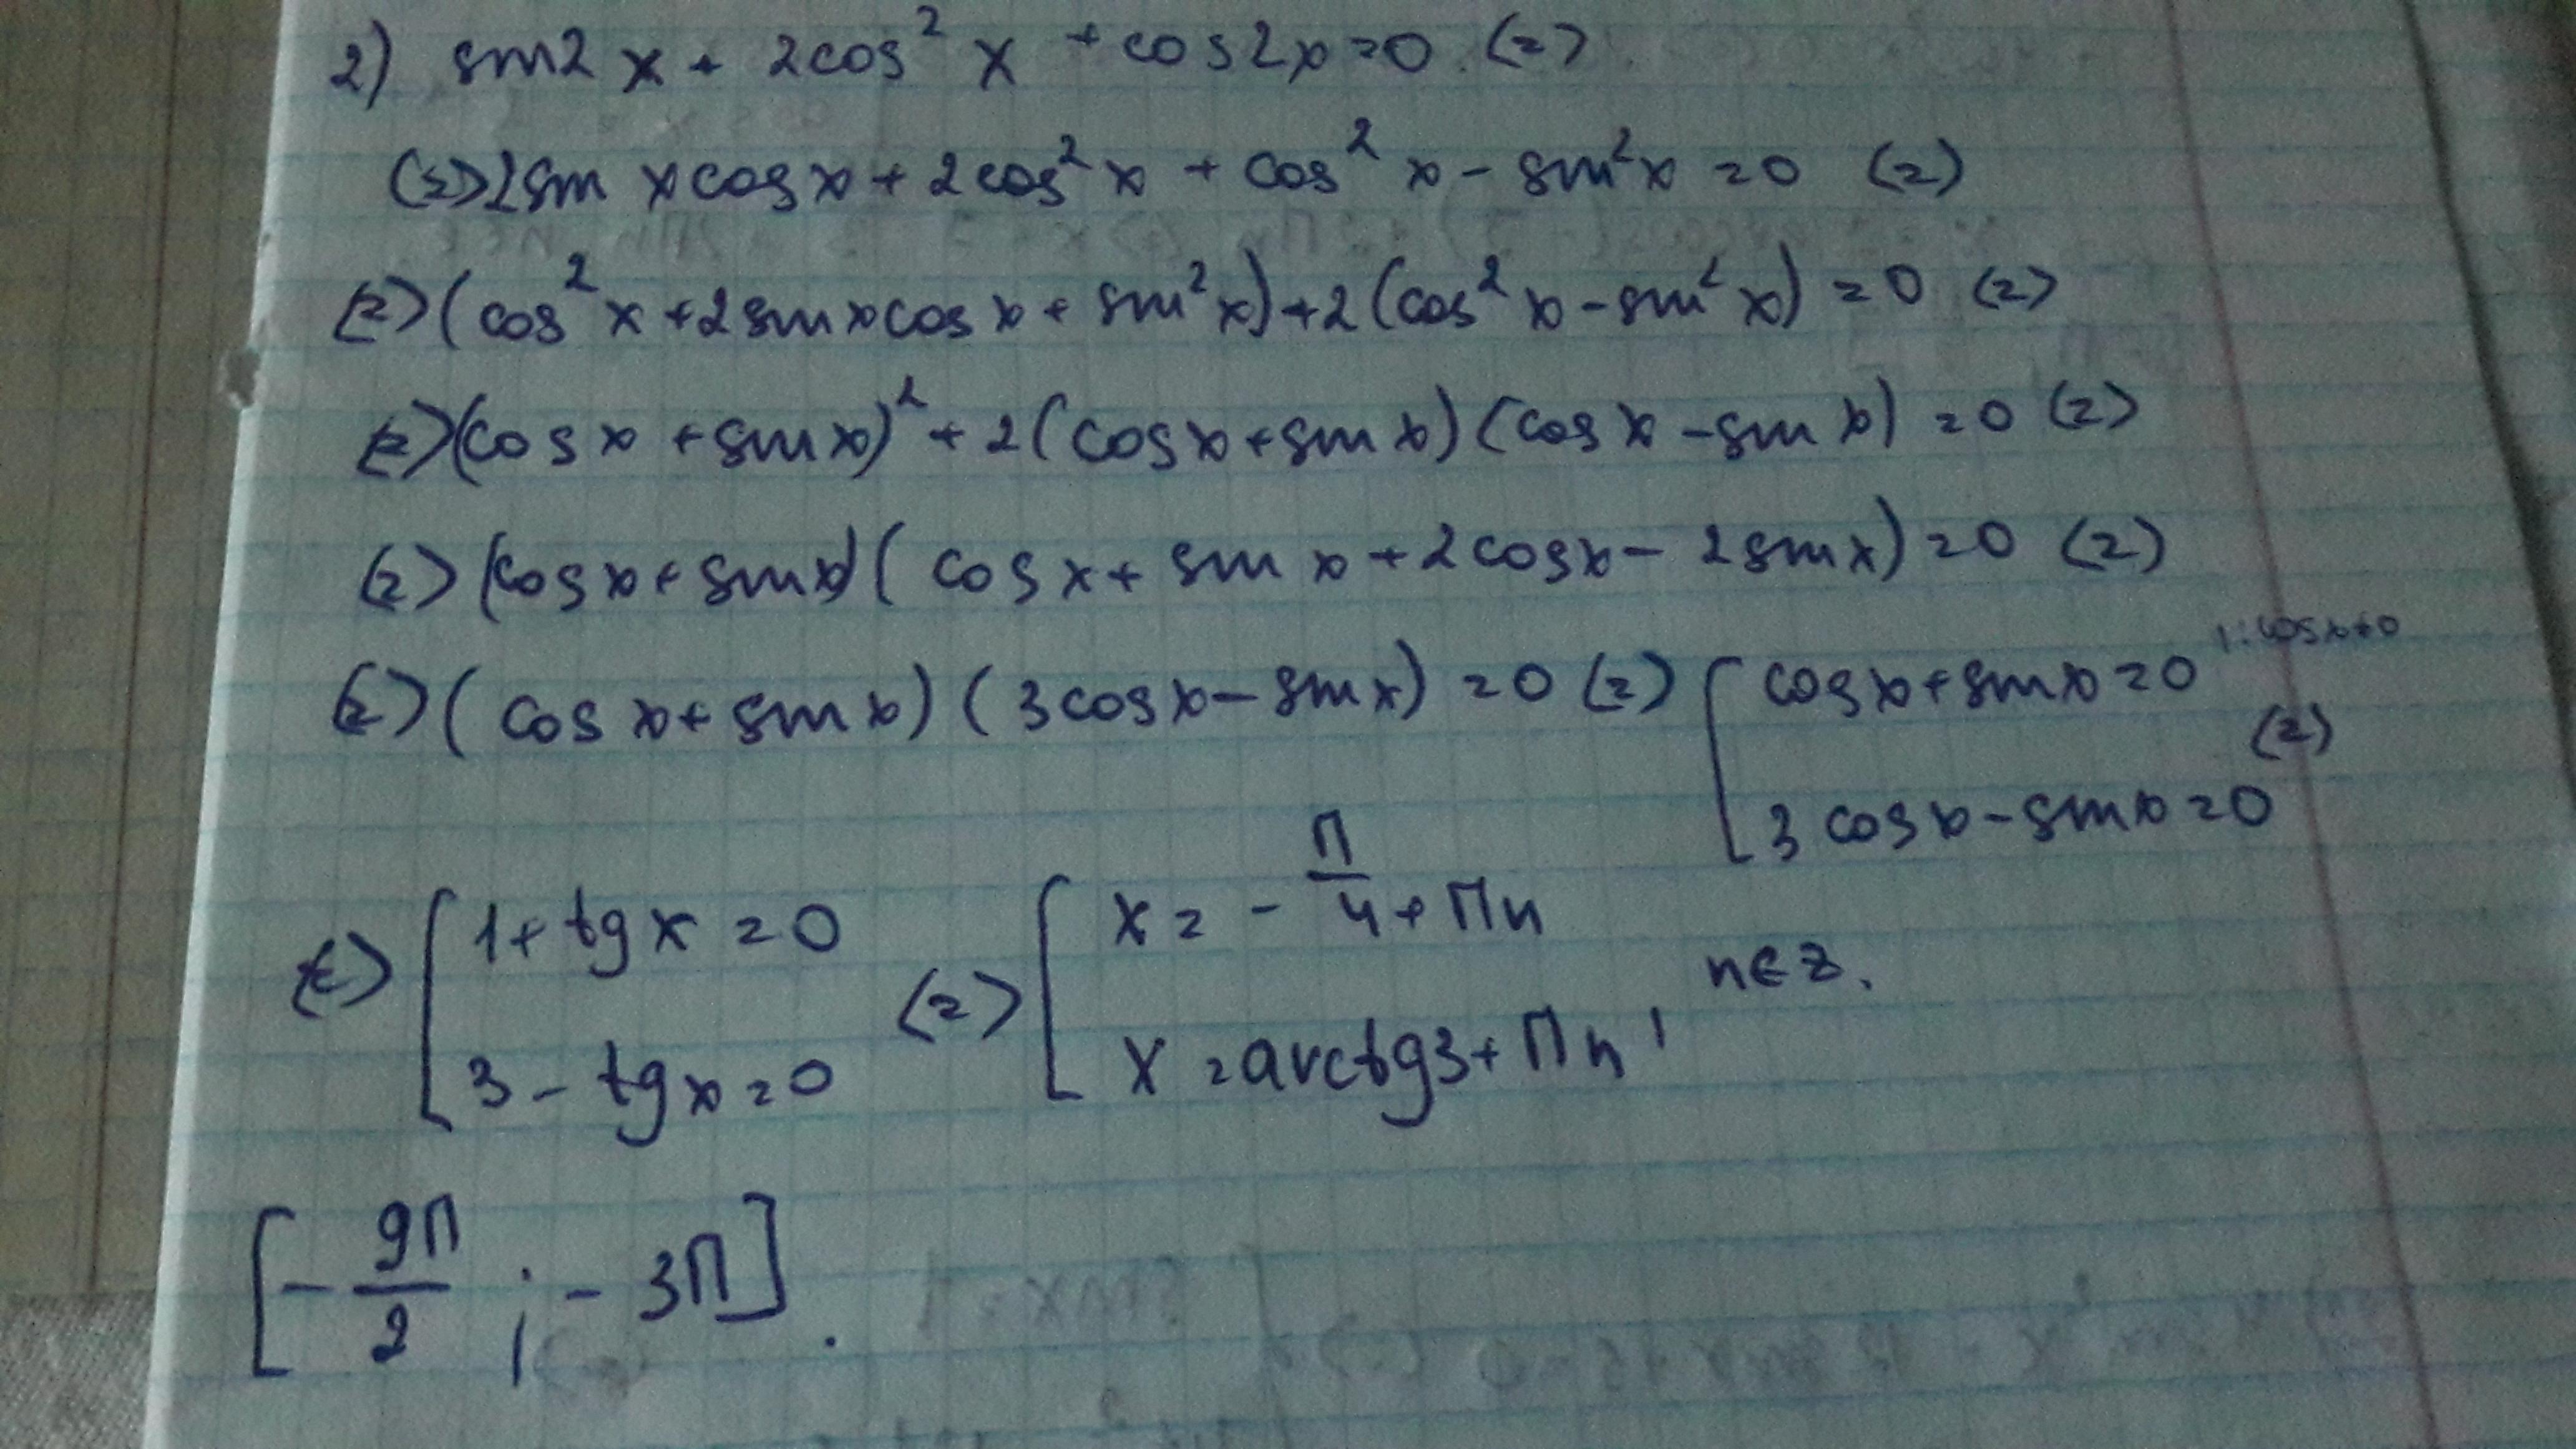 2) sin2x + 2cos²x + cos2x = 0. <=>
<=> 2sin x cos x + 2cos²x + cos²x - sin²x = 0 <=>
<=> (cos²x + 2sin x cos x + sin²x) + 2(cos²x - sin²x) = 0 <=>
<=> (cos x + sin x)² + 2(cos x + sin x)(cos x - sin x) = 0 <=>
<=> (cos x + sin x)(cos x + sin x + 2cos x - 2sin x) = 0 <=>
<=> (cos x + sin x)(3cos x - sin x) = 0 <=> [ cos x + sin x = 0 | : cos x ≠ 0
3 cos x - sin x = 0 <=>
<=> [ 1 + tg x = 0 <=> [ x = - π/4 + πn
3 - tg x = 0 x = arctg3 + πn , n ∈ Z.
[- 9π/2 ; - 3π].